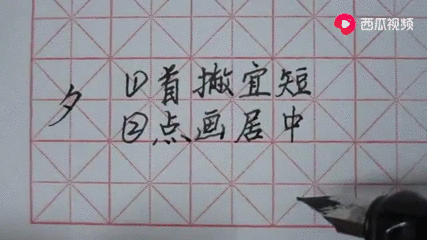 西瓜视频
夕
①首撇宜短
②点画居中